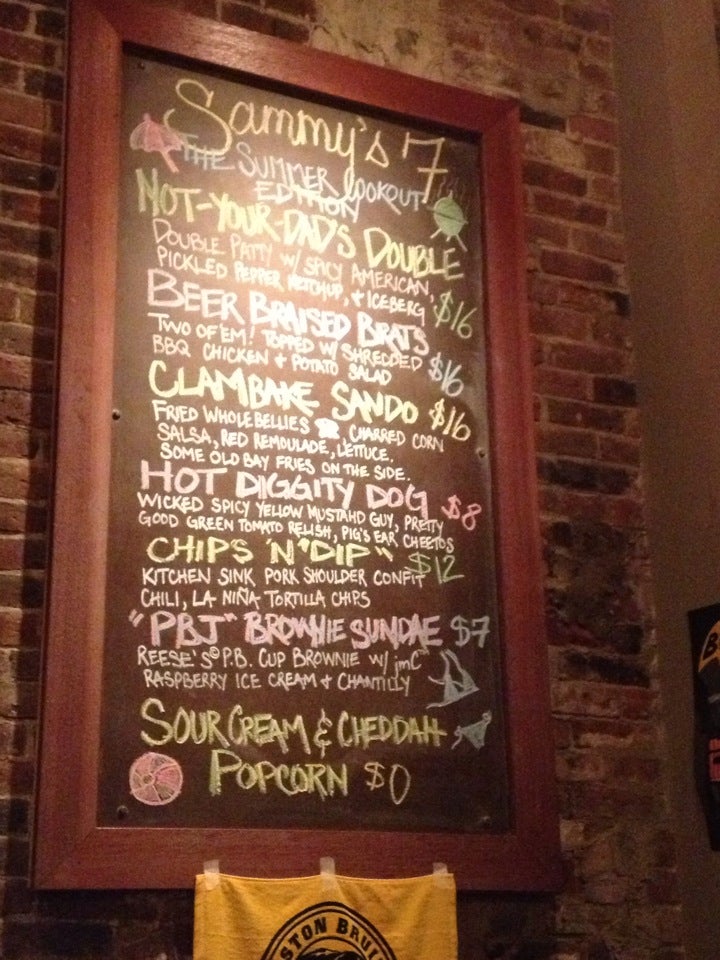 Sammy's 7
THE SUMMER COOKOUT
EDITION
NOT-YOUR-DAD'S DOUBLE
DOUBLE PATTY W/ SPICY AMERICAN,
PICKLED PEPPER KETCHUP, + ICEBERG $16
BEER BRAISED BRATS
TWO OF 'EM! TOPPED W/ SHREDDED $16
BBQ CHICKEN + POTATO SALAD
CLAMBAKE SANDO $16
FRIED WHOLE BELLIES CHARRED CORN
SALSA, RED REMOULADE, LETTUCE.
SOME OLD BAY FRIES ON THE SIDE.
HOT DIGGITY DOG $8
WICKED SPICY YELLOW MUSTAHD GUY, PRETTY
GOOD GREEN TOMATO RELISH, PIG'S EAR CHEETOS
CHIPS 'N' DIP" $12
KITCHEN SINK PORK SHOULDER CONFIT
CHILI, LA NIÑA TORTILLA CHIPS
"PBJ" BROWNIE SUNDAE $7
REESE'S© P.B. CUP BROWNIE W/ jmC
RASPBERRY ICE CREAM + CHANTILLY
SOUR CREAM & CHEDDAH
POPCORN $0
STON BRUI